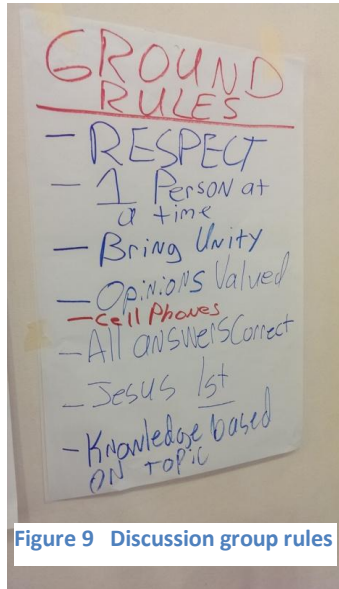 GROUND
RULES
- RESPECT
- 1 Person at
a time
- Bring Unity
- Opinions Valued
- Cell Phones
- All answers Correct
- Jesus 1st
- Knowledge based
ON TOPIC
Figure 9 Discussion group rules